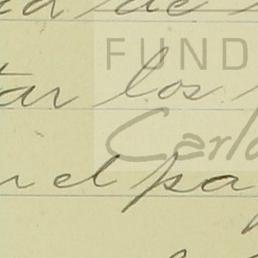 de
FUND
tar los
Carlo
el pa